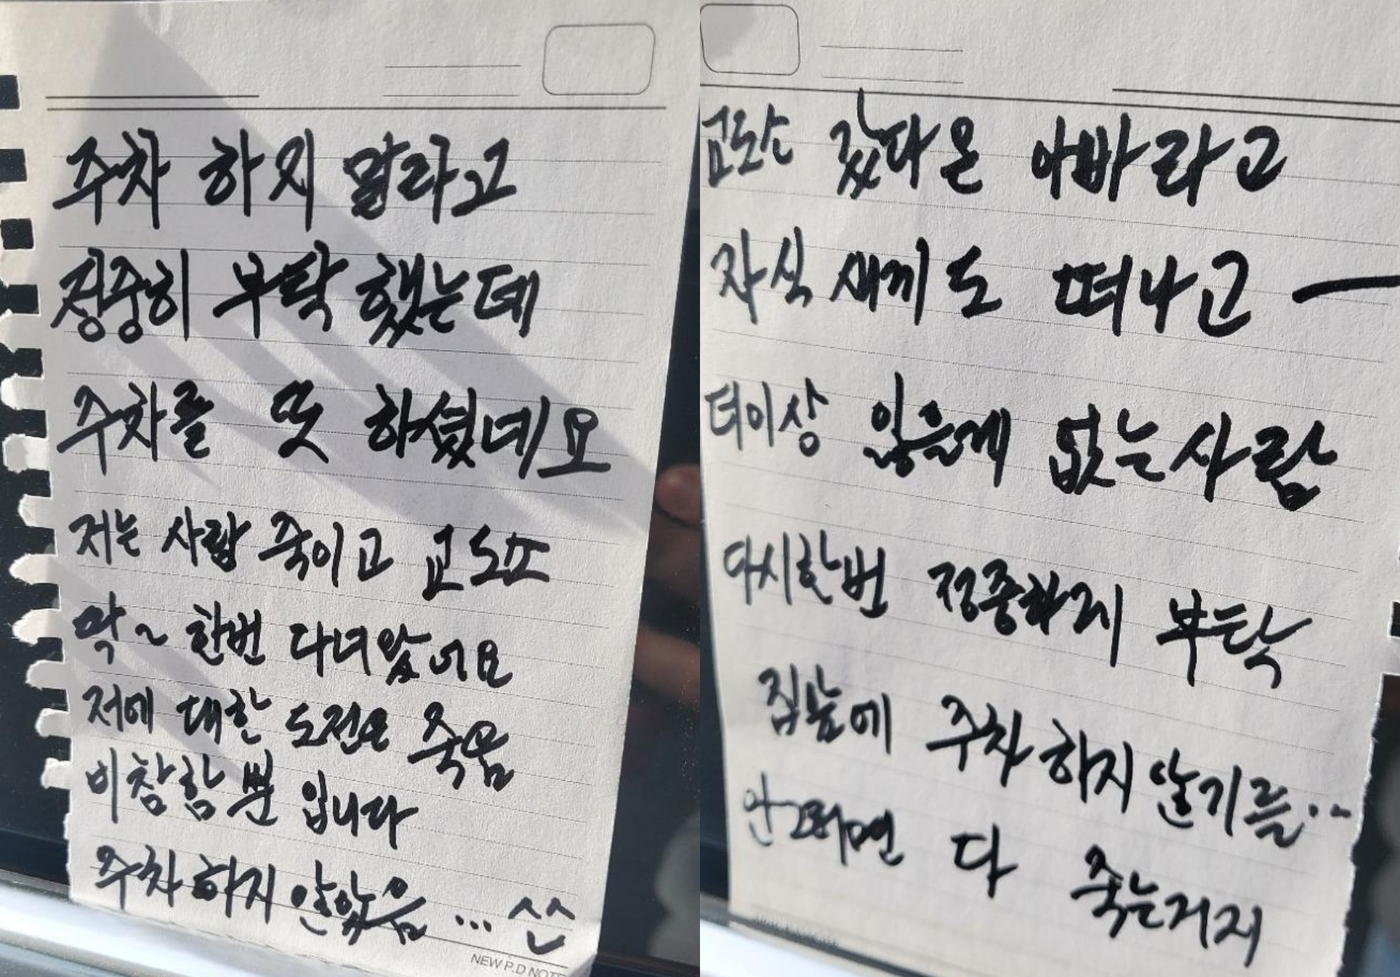 주차 하지 말라고
정중히 부탁 했는데
주차를 또 하셨네요
저는 사람 죽이고 교도소
딱~ 한번 다녀왔어요
저에 대한 도전은 죽음
비참함 뿐 입니다
주차 하지 않았음 ... ^^
NEW P.D NOTE
교도소 갔다온 아빠라고
자식 새끼도 떠나고 —
더이상 잃을게 없는사람
다시한번 정중하게 부탁
집앞에 주차 하지 않기를...
안그러면 다 죽는거지